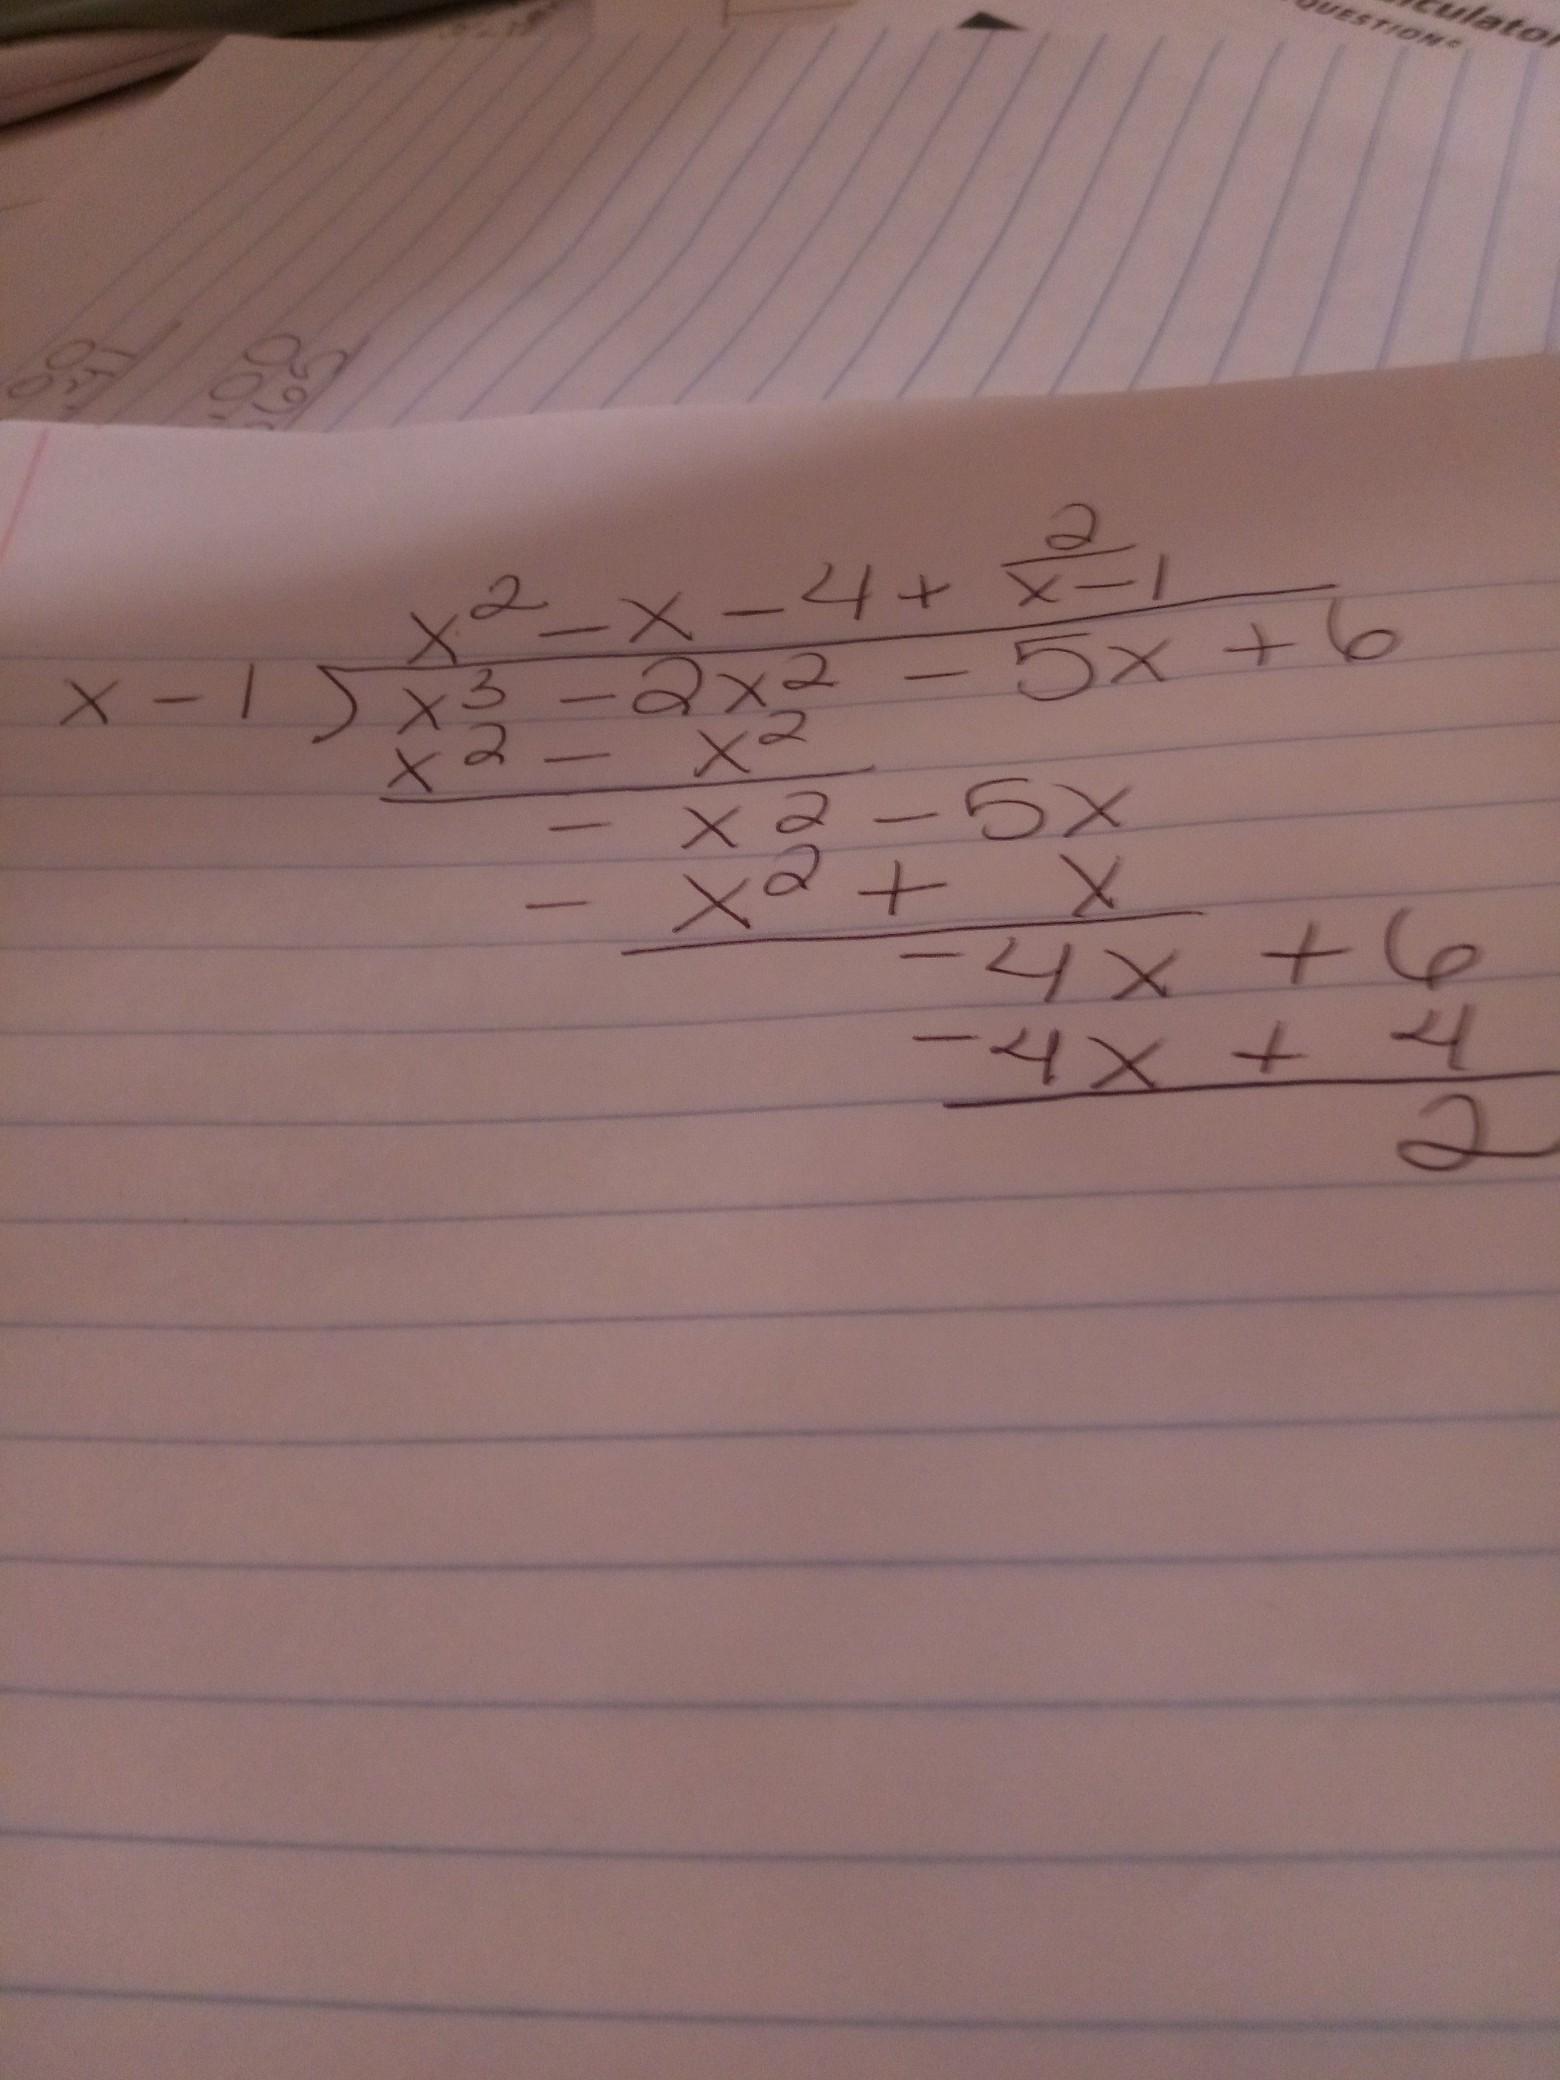 culator
QUESTION®
00
21
00
695
x² - x - 4 + 2/(x - 1)
x - 1 ) x³ - 2x² - 5x + 6
x² - x²
- x² - 5x
- x² + x
-4x + 6
-4x + 4
2